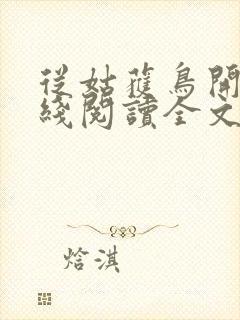 從姑蘿鳥開
綫閱讀全文
焓淇